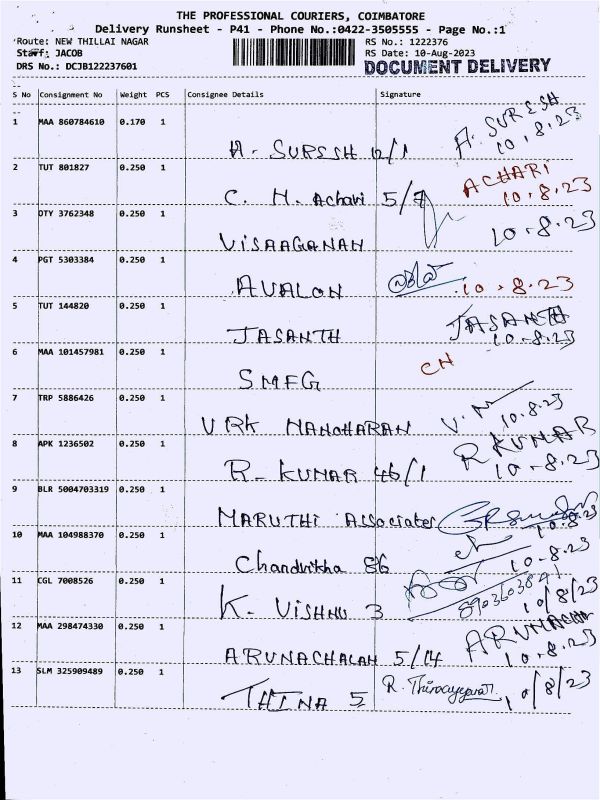 THE PROFESSIONAL COURIERS, COIMBATORE
Delivery Runsheet - P41 - Phone No.:0422-3505555 - Page No.:1
Route: NEW THILLAI NAGAR RS No.: 1222376
Staff: JACOB RS Date: 10-Aug-2023
DRS No.: DCJB122237601 DOCUMENT DELIVERY
S No Consignment No Weight PCS Consignee Details Signature
1 MAA 860784610 0.170 1 A. SURESH 12/1 A. SURESH 10.8.23
2 TUT 801827 0.250 1 C. H. Achari 5/7 ACHARI 10.8.23
3 OTY 3762348 0.250 1 VISAAGANAN 10.8.23
4 PGT 5303384 0.250 1 AVALON 10.8.23
5 TUT 144820 0.250 1 JASANTH JASANTH 10.8.23
6 MAA 101457981 0.250 1 SMFG CN
7 TRP 5886426 0.250 1 VRK MANOHARAN V. M 10.8.23
8 APK 1236502 0.250 1 R. KUMAR 46/1 R KUMAR 10.8.23
9 BLR 5004703319 0.250 1 MARUTHI Associates 10.8.23
10 MAA 104988370 0.250 1 Chandritha 86 10.8.23
11 CGL 7008526 0.250 1 K. VISHNU 3 10/8/23
12 MAA 298474330 0.250 1 ARUNACHALAM 5/14 ARUNACHA 10.8.23
13 SLM 325909489 0.250 1 THINA 5 R. 10/8/23